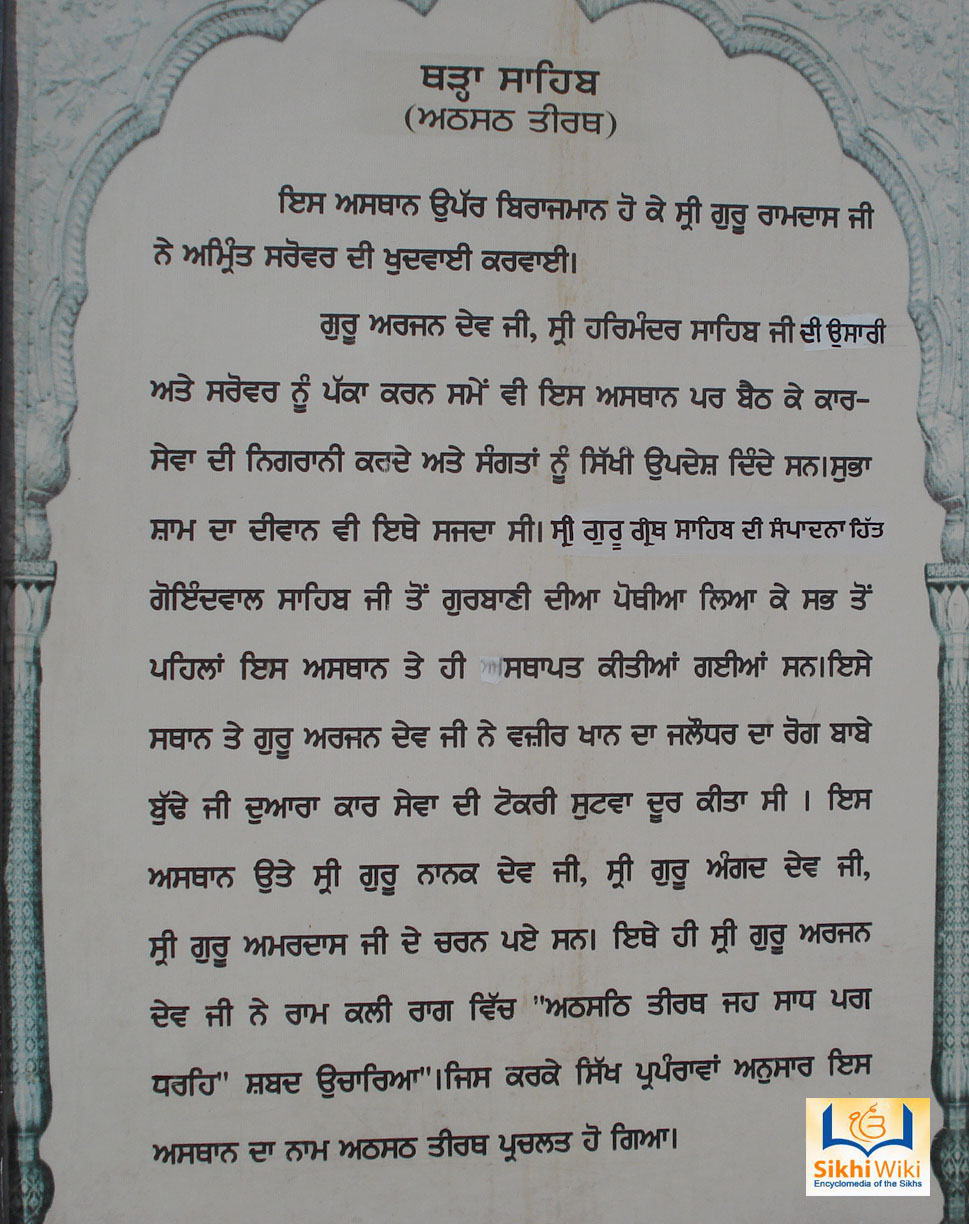 ਥੜ੍ਹਾ ਸਾਹਿਬ
(ਅਠਸਠ ਤੀਰਥ)
ਇਸ ਅਸਥਾਨ ਉਪੱਰ ਬਿਰਾਜਮਾਨ ਹੋ ਕੇ ਸ੍ਰੀ ਗੁਰੂ ਰਾਮਦਾਸ ਜੀ
ਨੇ ਅਮ੍ਰਿੰਤ ਸਰੋਵਰ ਦੀ ਖੁਦਵਾਈ ਕਰਵਾਈ।
ਗੁਰੂ ਅਰਜਨ ਦੇਵ ਜੀ, ਸ੍ਰੀ ਹਰਿਮੰਦਰ ਸਾਹਿਬ ਜੀ ਦੀ ਉਸਾਰੀ
ਅਤੇ ਸਰੋਵਰ ਨੂੰ ਪੱਕਾ ਕਰਨ ਸਮੇਂ ਵੀ ਇਸ ਅਸਥਾਨ ਪਰ ਬੈਠ ਕੇ ਕਾਰ-
ਸੇਵਾ ਦੀ ਨਿਗਰਾਨੀ ਕਰਦੇ ਅਤੇ ਸੰਗਤਾਂ ਨੂੰ ਸਿੱਖੀ ਉਪਦੇਸ਼ ਦਿੰਦੇ ਸਨ।ਸੁਭਾ
ਸ਼ਾਮ ਦਾ ਦੀਵਾਨ ਵੀ ਇਥੇ ਸਜਦਾ ਸੀ। ਸ੍ਰੀ ਗੁਰੂ ਗ੍ਰੰਥ ਸਾਹਿਬ ਦੀ ਸੰਪਾਦਨਾ ਹਿੱਤ
ਗੋਇੰਦਵਾਲ ਸਾਹਿਬ ਜੀ ਤੋਂ ਗੁਰਬਾਣੀ ਦੀਆ ਪੋਥੀਆ ਲਿਆ ਕੇ ਸਭ ਤੋਂ
ਪਹਿਲਾਂ ਇਸ ਅਸਥਾਨ ਤੇ ਹੀ ਸਥਾਪਤ ਕੀਤੀਆਂ ਗਈਆਂ ਸਨ।ਇਸੇ
ਸਥਾਨ ਤੇ ਗੁਰੂ ਅਰਜਨ ਦੇਵ ਜੀ ਨੇ ਵਜ਼ੀਰ ਖਾਨ ਦਾ ਜਲੌਧਰ ਦਾ ਰੋਗ ਬਾਬੇ
ਬੁੱਢੇ ਜੀ ਦੁਆਰਾ ਕਾਰ ਸੇਵਾ ਦੀ ਟੋਕਰੀ ਸੁਟਵਾ ਦੂਰ ਕੀਤਾ ਸੀ । ਇਸ
ਅਸਥਾਨ ਉਤੇ ਸ੍ਰੀ ਗੁਰੂ ਨਾਨਕ ਦੇਵ ਜੀ, ਸ੍ਰੀ ਗੁਰੂ ਅੰਗਦ ਦੇਵ ਜੀ,
ਸ੍ਰੀ ਗੁਰੂ ਅਮਰਦਾਸ ਜੀ ਦੇ ਚਰਨ ਪਏ ਸਨ। ਇਥੇ ਹੀ ਸ੍ਰੀ ਗੁਰੂ ਅਰਜਨ
ਦੇਵ ਜੀ ਨੇ ਰਾਮ ਕਲੀ ਰਾਗ ਵਿੱਚ "ਅਠਸਠਿ ਤੀਰਥ ਜਹ ਸਾਧ ਪਗ
ਧਰਹਿ" ਸ਼ਬਦ ਉਚਾਰਿਆ"।ਜਿਸ ਕਰਕੇ ਸਿੱਖ ਪ੍ਰਪੰਰਾਵਾਂ ਅਨੁਸਾਰ ਇਸ
ਅਸਥਾਨ ਦਾ ਨਾਮ ਅਠਸਠ ਤੀਰਥ ਪ੍ਰਚਲਤ ਹੋ ਗਿਆ।
ੴ
SikhiWiki
Encyclomedia of the Sikhs